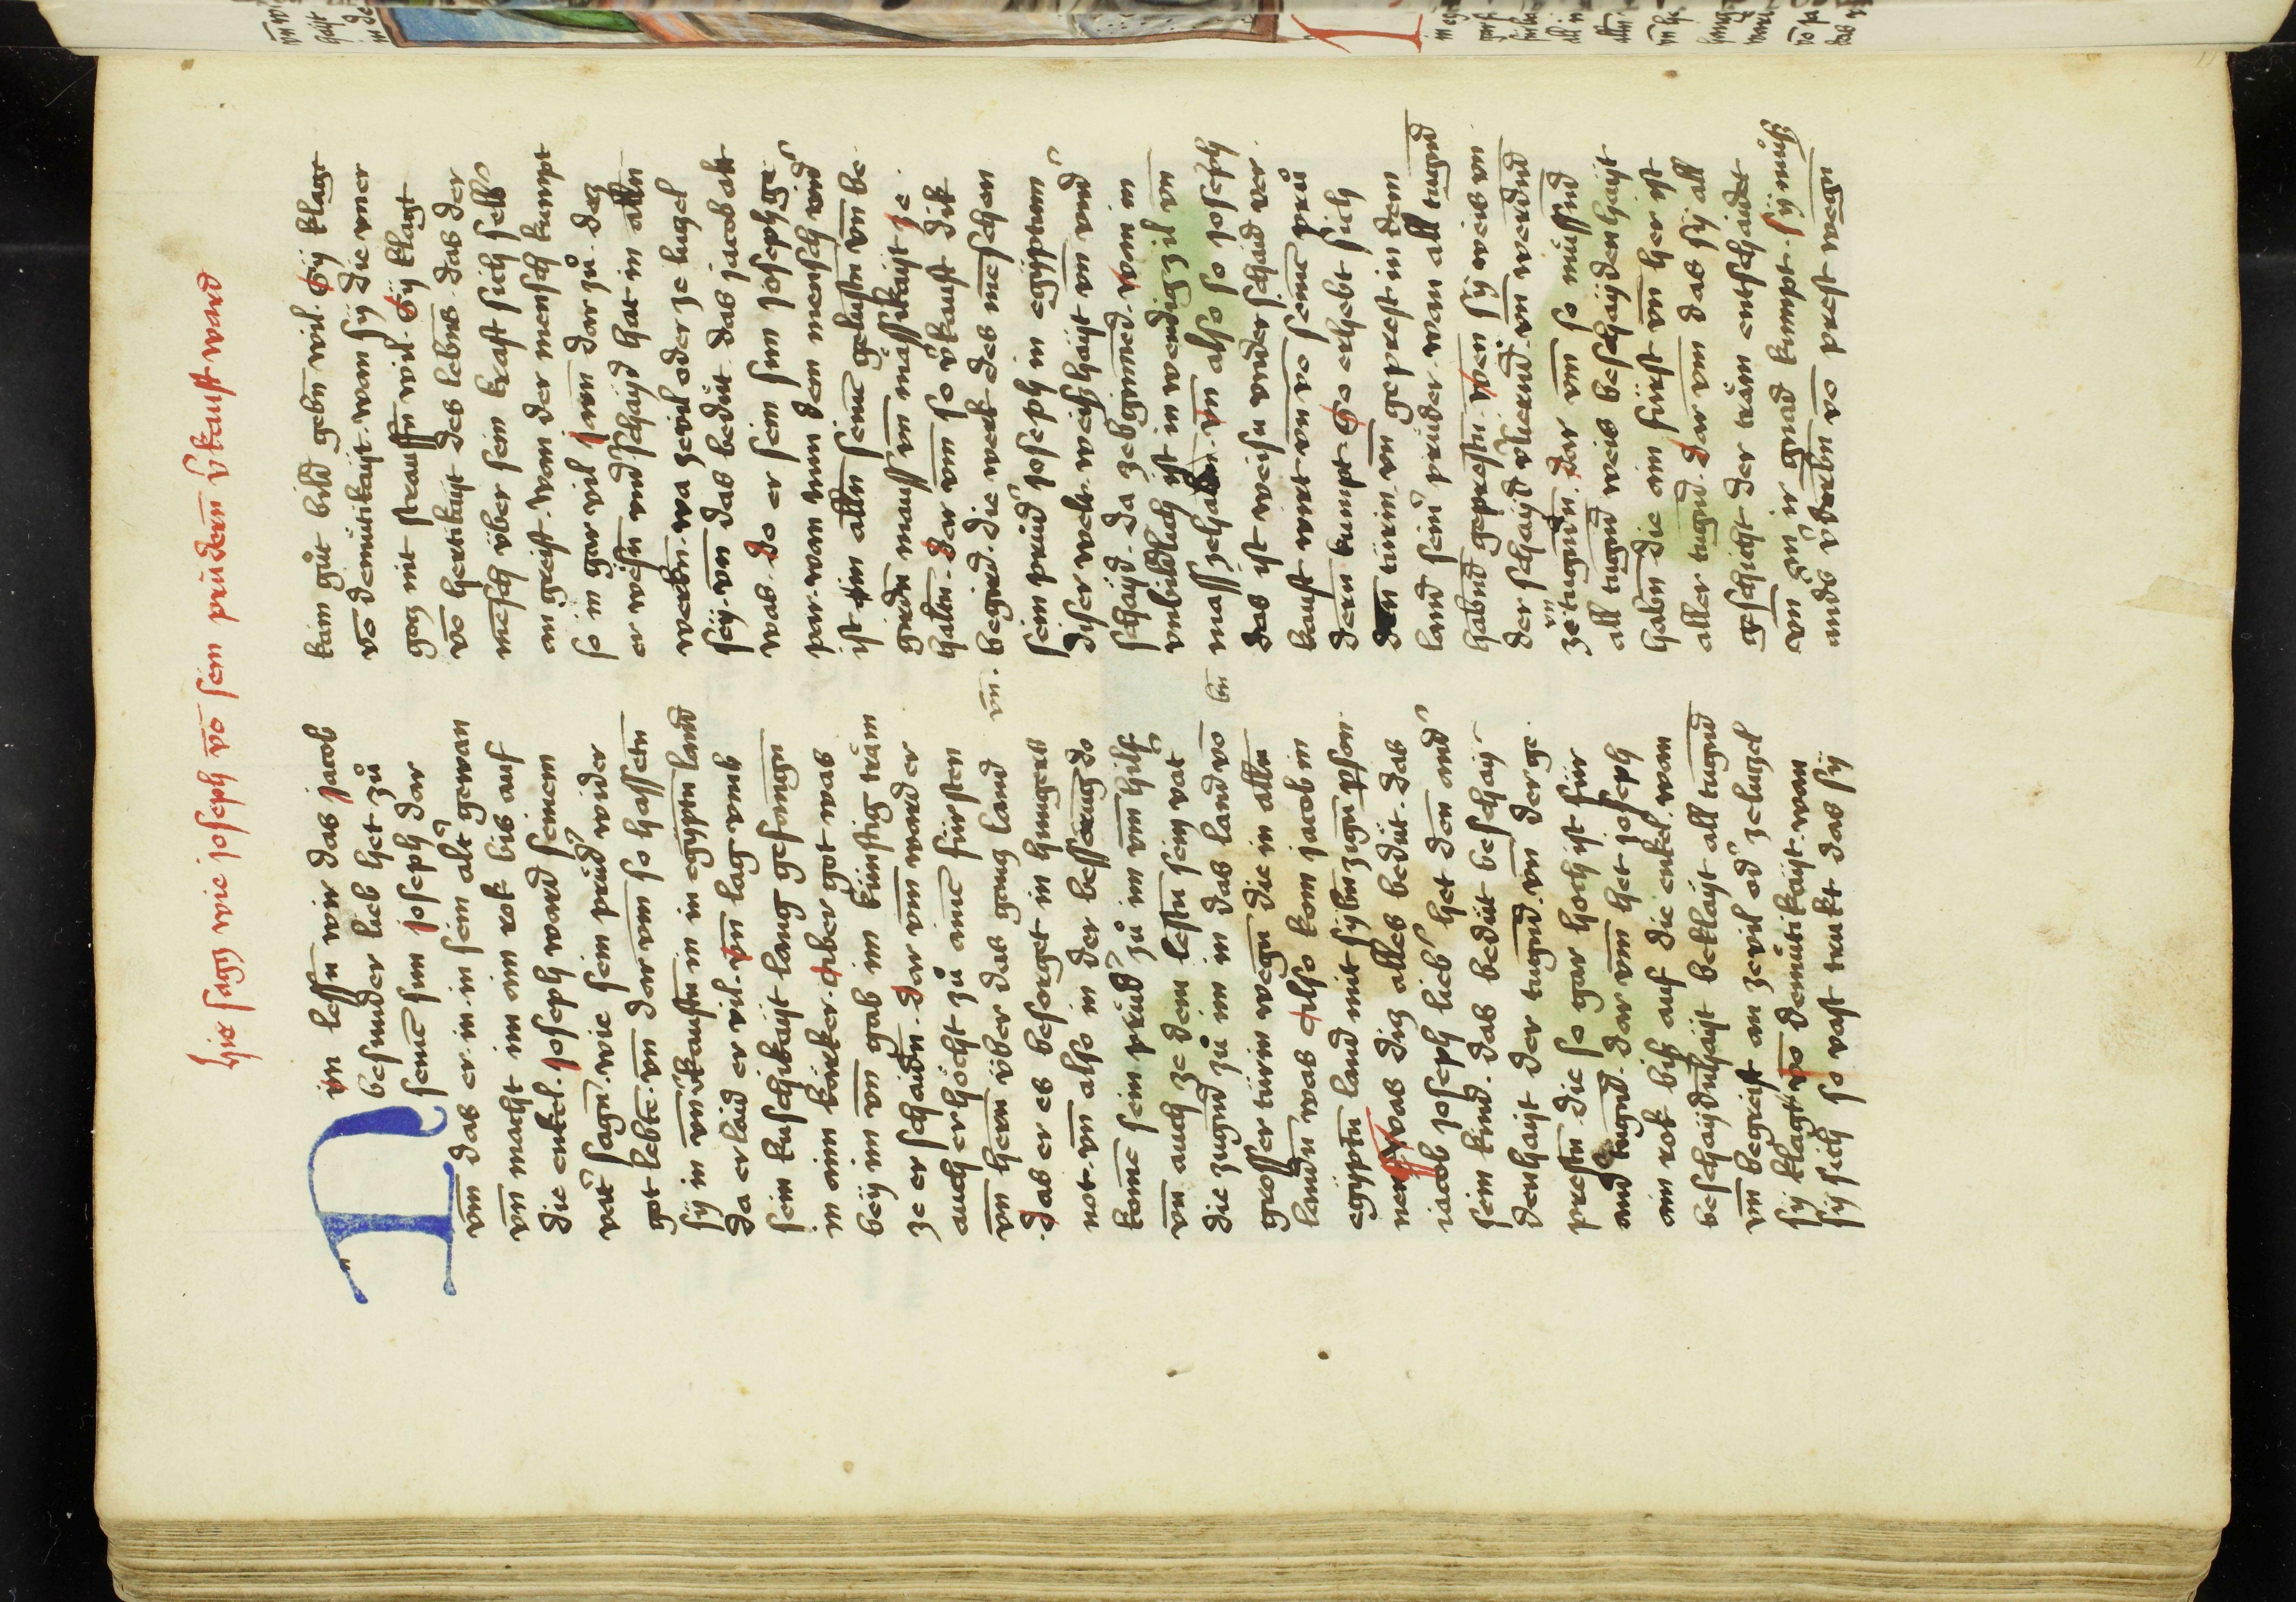 hie sagz wie joseph vō sein průdern ṽkauft ward
Nun lessn̄ wir das jacob
besunder lieb het zů
seinē sun joseph dar
vm̄ das er in in sein alt͛ gewan
vn̄ macht im ain rok bis auf
die enkel. Joseph ward seinem
vat͛ sagn̄. wie sein průd͛ wider
got lebtē. vn̄ dar vm̄ so hassetn̄
sÿ in vn̄ ṽkauftn̄ in in egÿptn̄ land
da er laid er vil. vn̄ lag vmb
sein kuschikaÿt lang gefangn̄
in aim kärker. Aber got was
beÿ im vn̄ gab im künftig träm
ze er schaidn̄. Dar vm̄ ward er
auch er höcht zů ainē fürsten
vn̄ hern̄ über das ganz land
Das er es besorget in hungers
not. vn̄ also in der bessrung do
komē sein průd͛ zů im vm̄ hilf
vn̄ auch ze dem lestn̄ sein vat͛
die zugnd zů im in das land vō
grosser türin wegn̄ die in alln̄
landn̄ was Also kom jacob in
egÿptn̄ land mit sÿbnzugn̄ pson.
nen Was diz alles bedüt. das
iacob joseph lieb͛ het den and͛
sein kind. das bedüt beschaÿ
denhaÿt der tugnd. vn̄ der ge
prestn̄ die so gar hoch ist für
and tugnd. dar vm̄ het joseph
ain rok biß auf die enkel. wan
beschaÿdnhaÿt beklaÿt all tugnd
vn̄ begreift an zevil od͛ zeluzel
sÿ klagt vō demütikaÿt. wan
sÿ sich so vast trukt das sÿ
kain gůt bild gebn̄ wil. Sÿ klagt
vō demütikaÿt. wan sÿ die vner
gaz nit strauffn̄ wil. Sÿ klagt
vō hertikaÿt des lebn̄s. das der
mēsch über sein kraft sich selb͛
an greift. wan der mensch kumpt
so in gar vil jam̄ dar zů. dez
er wesn̄ vnd͛schaÿd hat in alln̄
werkn̄. wa zevil oder ze luzel
seÿ. vn̄ das bedüt. das jacob alt
was. do er sein sun joseph ge
par. wan nun dem mensch wid͛
ist im alln̄ seinē gelustn̄ vn̄ be
girdn̄ mauss vn̄ mässikaÿt ze
haltn̄. Dar vm̄ so ṽkauft dik
vn̄. begird. die werk des mēschen
sein prud͛ joseph in egÿptum
diser welt. weißhaÿt vn̄ vnd͛
schaÿd. da ze beginned. wan in
vnbildlich ist in wendig zil vn̄
mass ze habn̄. vn̄ also so joseph
das ist weisn̄ vnder schaid ver
kauft wirt vn̄ vō seinē prů
dern kumpt. So erhebt sich
den türin vn̄ geprest in dem
land seinr prüder. wan all tugnd
habnd geprestn̄. wen sÿ weis vn̄
der schaÿd ṽliernd. vn̄ werdnd
ze vn̄tugndn̄. Dar vm̄ so müssnd
all tugnd weis beschaÿdenhaÿt
habn̄ die ain fürst vn̄ her ist
aller tugnd. Dar vm̄ das sÿ all
gschicht der träm entschaidet
vm̄ an ir gnad kumpt. sÿ můß
and͛s ṽderbn̄ vō prest wegn̄